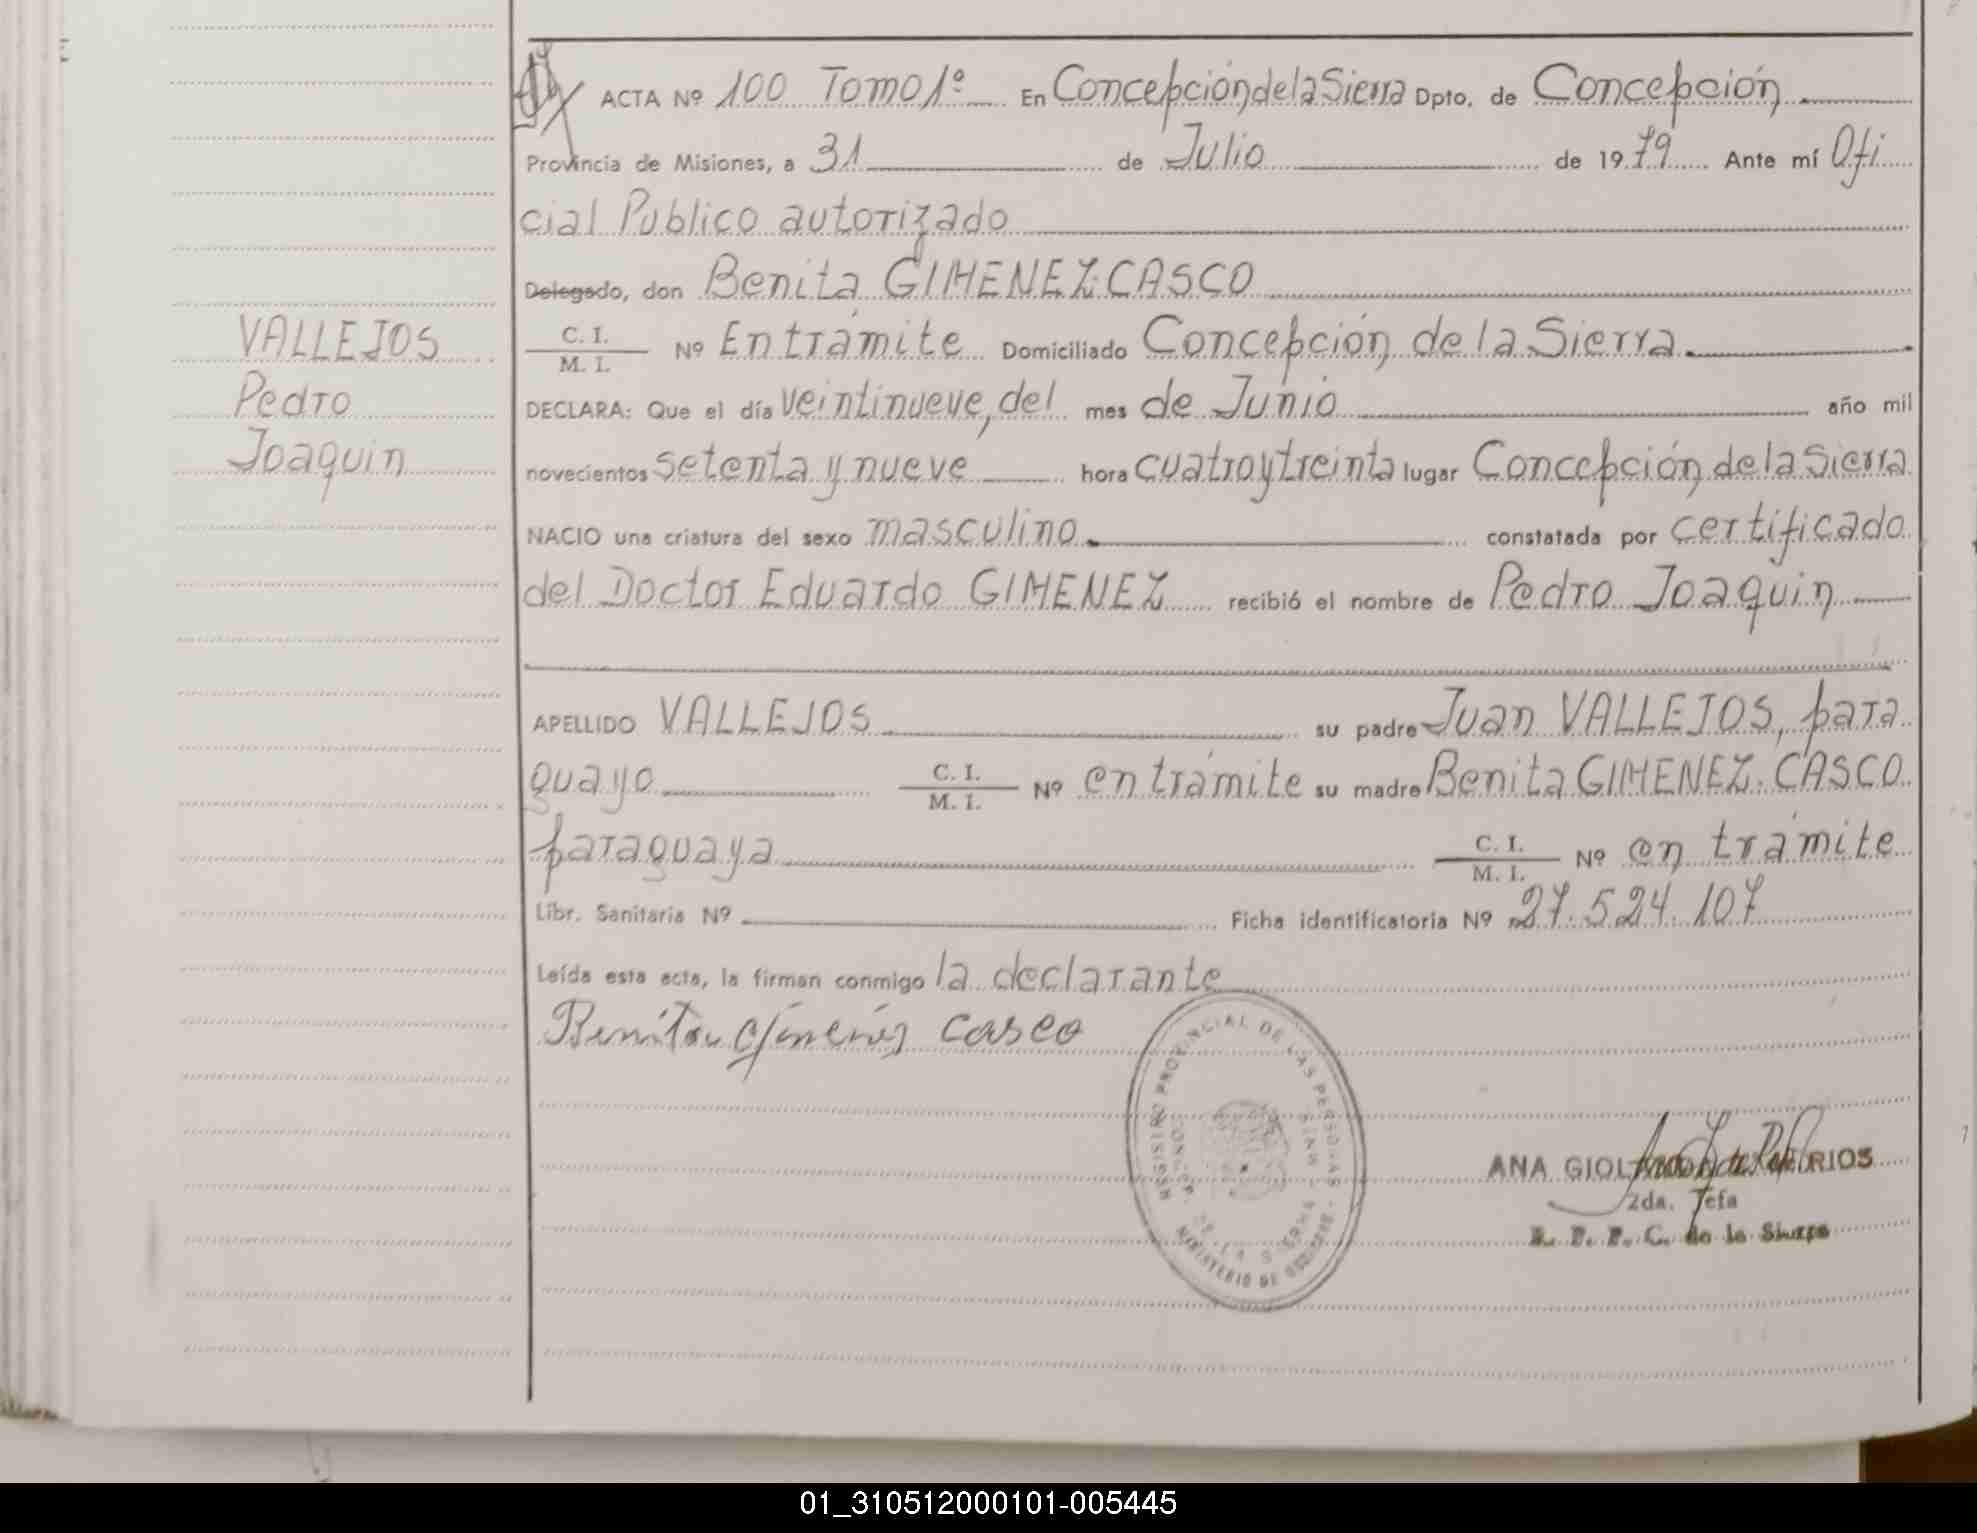 ACTA Nº 100 Tomo 1º En Concepción de la Sierra Dpto. de Concepción
Provincia de Misiones, a 31 de Julio de 1979 Ante mí Ofi
cial Publico autorizado
Delegado, don Benita GIMENEZ CASCO
C. I.
M. I.
Nº En trámite Domiciliado Concepción de la Sierra
VALLEJOS
Pedro
Joaquin
DECLARA: Que el día veintinueve, del mes de Junio año mil
novecientos setenta y nueve hora cuatro y treinta lugar Concepción de la Sierra
NACIO una criatura del sexo masculino constatada por certificado
del Doctor Eduardo GIMENEZ recibió el nombre de Pedro Joaquin
APELLIDO VALLEJOS su padre Juan VALLEJOS, para
guayo C. I. M. I. Nº en trámite su madre Benita GIMENEZ CASCO
paraguaya C. I. M. I. Nº en trámite
Libr. Sanitaria Nº Ficha identificatoria Nº 27.524.107
Leída esta acta, la firman conmigo la declarante
Benita Giménez Casco
REGISTRO PROVINCIAL DE LAS PERSONAS
MINISTERIO DE GOBIERNO
ANA RIOS
2da. Jefa
R. P. P. C. de la Sierra
01_310512000101-005445